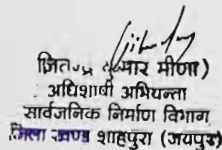 (जितेन्द्र कुमार मीणा)
अधिशाषी अभियन्ता
सार्वजनिक निर्माण विभाग
जिला खण्ड शाहपुरा (जयपुर)